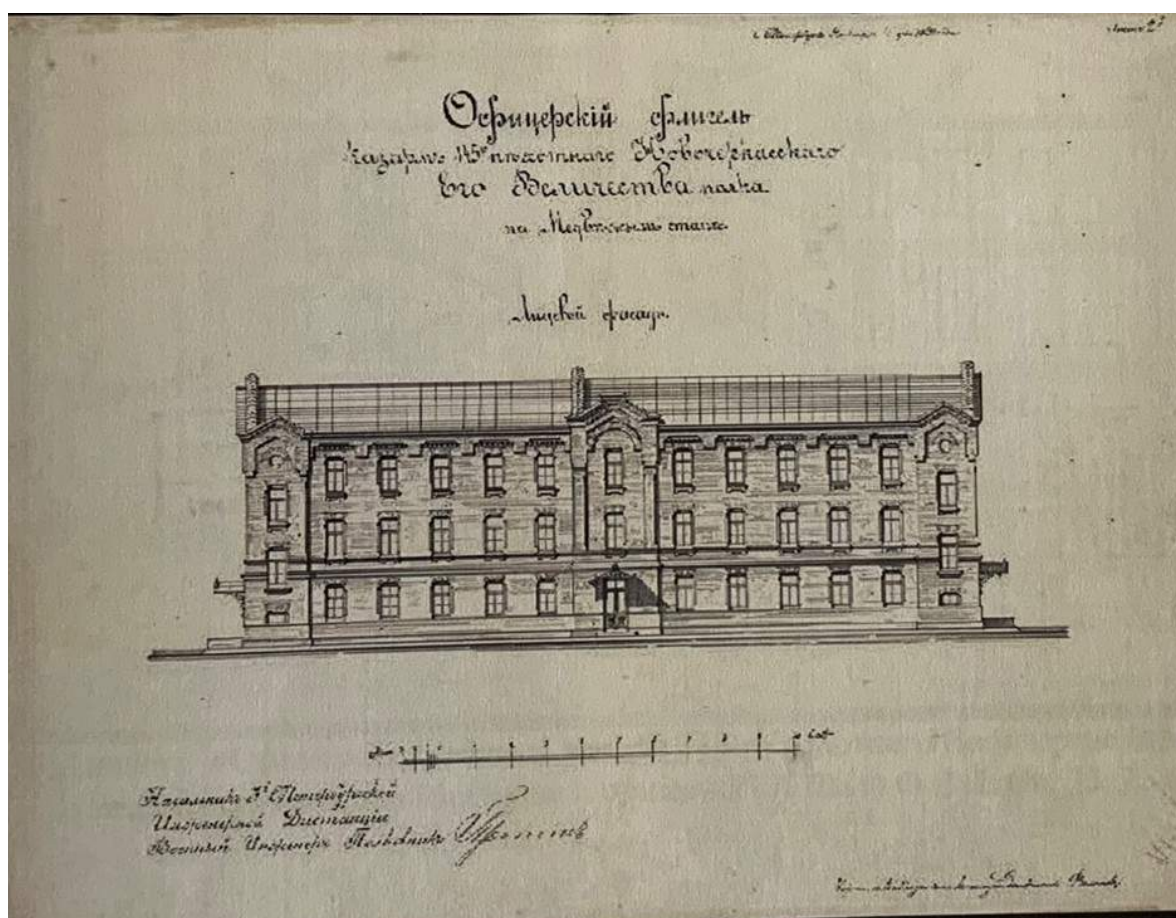 С. Петербургъ
Листъ 2й
Офицерскій флигель
казармъ 145го пѣхотнаго Новочеркасскаго
Его Величества полка
на Медвѣжьемъ станѣ
Лицевой фасадъ.
1 2 3 4 5 6 7 8 9 10 Саж.
Начальникъ 3й С.Петербургской
Инженерной Дистанціи
Военный Инженеръ Полковникъ